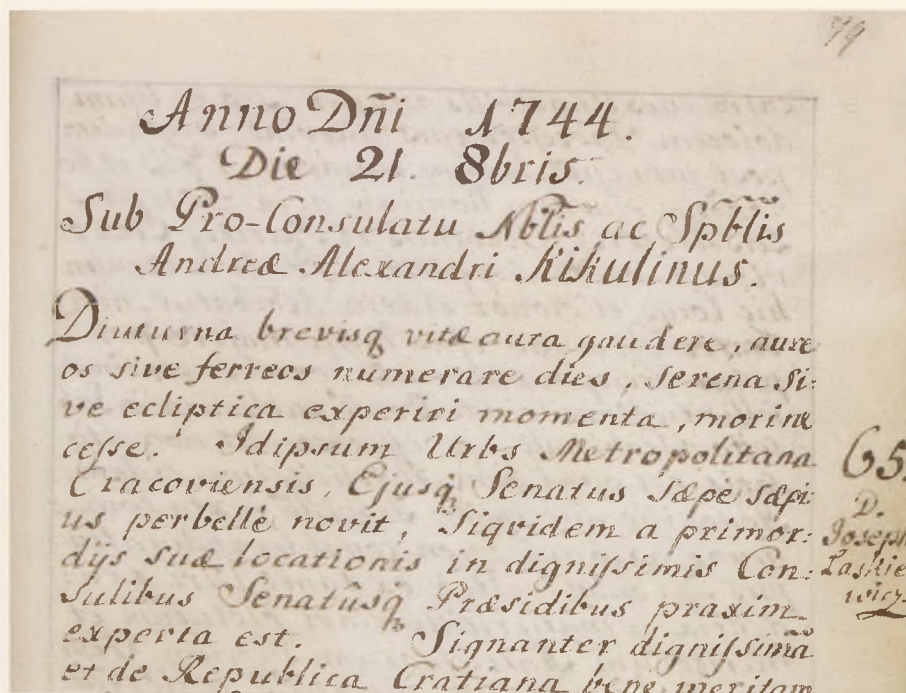 79
Anno Dñi 1744.
Die 21. 8bris.
Sub Pro-Consulatu Nbl̃is ac Spbl̃is
Andreæ Alexandri Kikulinus.
Diuturna brevisq́ vitæ aura gaudere, aure
os sive ferreos numerare dies, serena si:
ve ecliptica experiri momenta, mori ne
ceſse. Idipsum Urbs Metropolitana
Cracoviensis, Ejusq́ Senatus sæpe sæpi:
us perbellè novit, siqvidem a primor:
dijs suæ locationis in digniſsimis Con:
sulibus Senatûsq́ Præsidibus praxim
experta est. Signanter digniſsimã
et de Republica Cratiana bene meritam
65.
D.
Joseph
Laskie
wicz